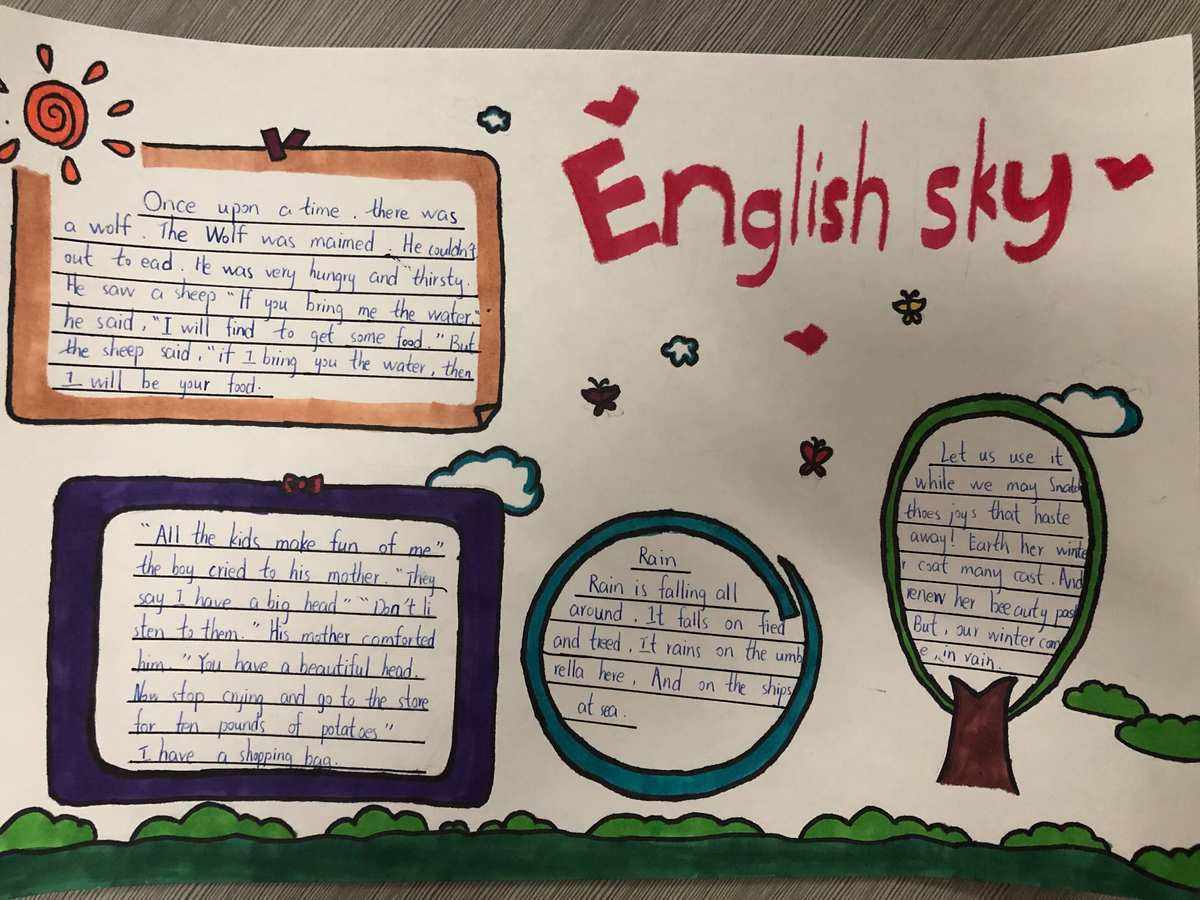 English sky
Once upon a time, there was
a wolf. The Wolf was maimed. He couldn't
out to ead. He was very hungry and "thirsty.
He saw a sheep "If you bring me the water."
he said, "I will find to get some food." But
the sheep said, "if I bring you the water, then
I will be your food.
"All the kids make fun of me"
the boy cried to his mother. "They
say I have a big head" "Don't li
sten to them." His mother comforted
him. "You have a beautiful head.
Now stop crying and go to the store
for ten pounds of potatoes"
I have a shopping bag.
Rain
Rain is falling all
around. It falls on fied
and treed. It rains on the umb
rella here, And on the ships
at sea.
Let us use it
while we may Snatch
thoes joys that haste
away! Earth her winte
r coat many cast. And
renew her bee auty past
But, our winter com
e, in vain.